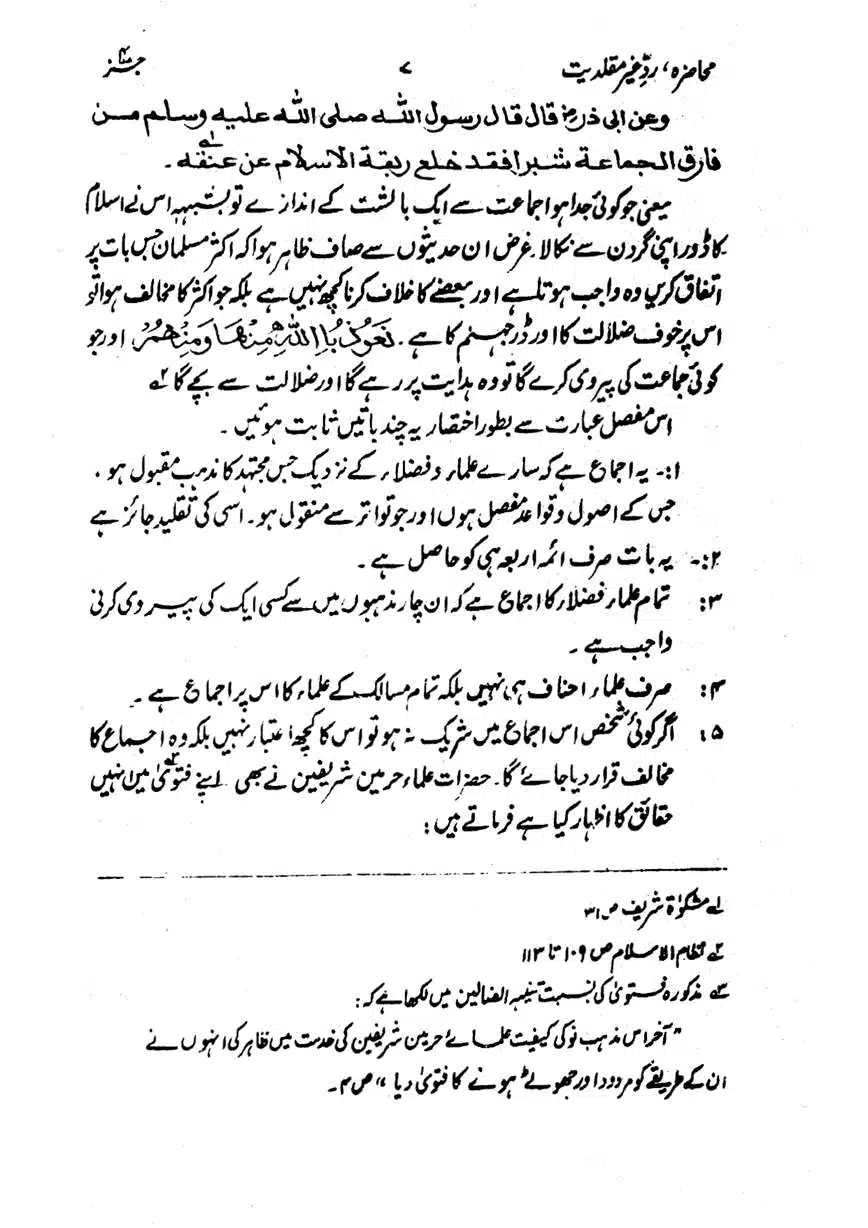 محاضرہ، ردِّ غیر مقلدیت ۷ جز ۴
وعن ابی ذرؓ قال قال رسول اللہ صلی اللہ علیہ وسلم من
فارق الجماعة شبرا فقد خلع ربقة الاسلام عن عنقه ۔ لے
یعنی جو کوئی جدا ہوا جماعت سے ایک بالشت کے اندازے تو بشبہہ اس نے اسلام
کا ڈورا اپنی گردن سے نکالا۔ غرض ان حدیثوں سے صاف ظاہر ہوا کہ اکثر مسلمان جس بات پر
اتفاق کریں وہ واجب ہوتا ہے اور بعضے کا خلاف کرنا کچھ نہیں ہے بلکہ جو اکثر کا مخالف ہوا تو
اس پر خوف ضلالت کا اور ڈر جہنم کا ہے۔ نَعُوذُ بِاللّٰہِ مِنْهَا وَمِنْهُمْ اور جو
کوئی جماعت کی پیروی کرے گا تو وہ ہدایت پر رہے گا اور ضلالت سے بچے گا ۲ے
اس مفصل عبارت سے بطور اختصار یہ چند باتیں ثابت ہوئیں ۔
۱:- یہ اجماع ہے کہ سارے علماء و فضلاء کے نزدیک جس مجتہد کا مذہب مقبول ہو ،
جس کے اصول و قواعد مفصل ہوں اور جو تواتر سے منقول ہو۔ اسی کی تقلید جائز ہے
۲:- یہ بات صرف ائمہ اربعہ ہی کو حاصل ہے ۔
۳: تمام علماء فضلاء کا اجماع ہے کہ ان چار مذہبوں میں سے کسی ایک کی پیروی کرنی
واجب ہے ۔
۴: صرف علماء احناف ہی نہیں بلکہ تمام مسالک کے علماء کا اس پر اجماع ہے ۔
۵: اگر کوئی شخص اس اجماع میں شریک نہ ہو تو اس کا کچھ اعتبار نہیں بلکہ وہ اجماع کا
مخالف قرار دیا جائے گا۔ حضرات علماء حرمین شریفین نے بھی اپنے فتویٰ ۳ے میں انہیں
حقائق کا اظہار کیا ہے فرماتے ہیں:
۱ے مشکوٰۃ شریف ص ۳۱
۲ے نظام الاسلام ص ۱۰۹ تا ۱۱۳
۳ے مذکورہ فتویٰ کی نسبت تنبیہ الضالین میں لکھا ہے کہ:
"آخر اس مذہب نو کی کیفیت علمائے حرمین شریفین کی خدمت میں ظاہر کی انہوں نے
ان کے طریقے کو مردود اور جھوٹے ہونے کا فتویٰ دیا" ص ۴۔